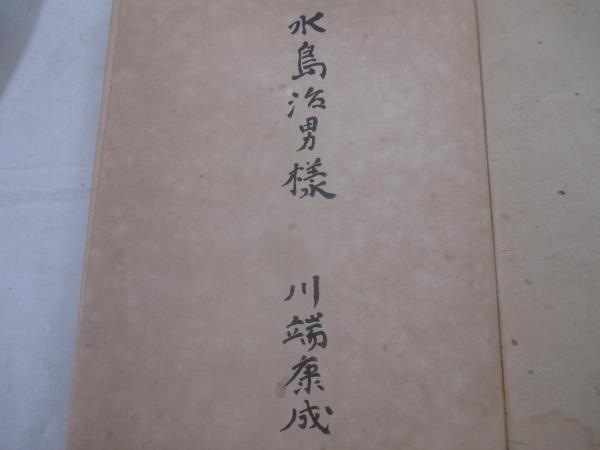 水島治男様
川端康成